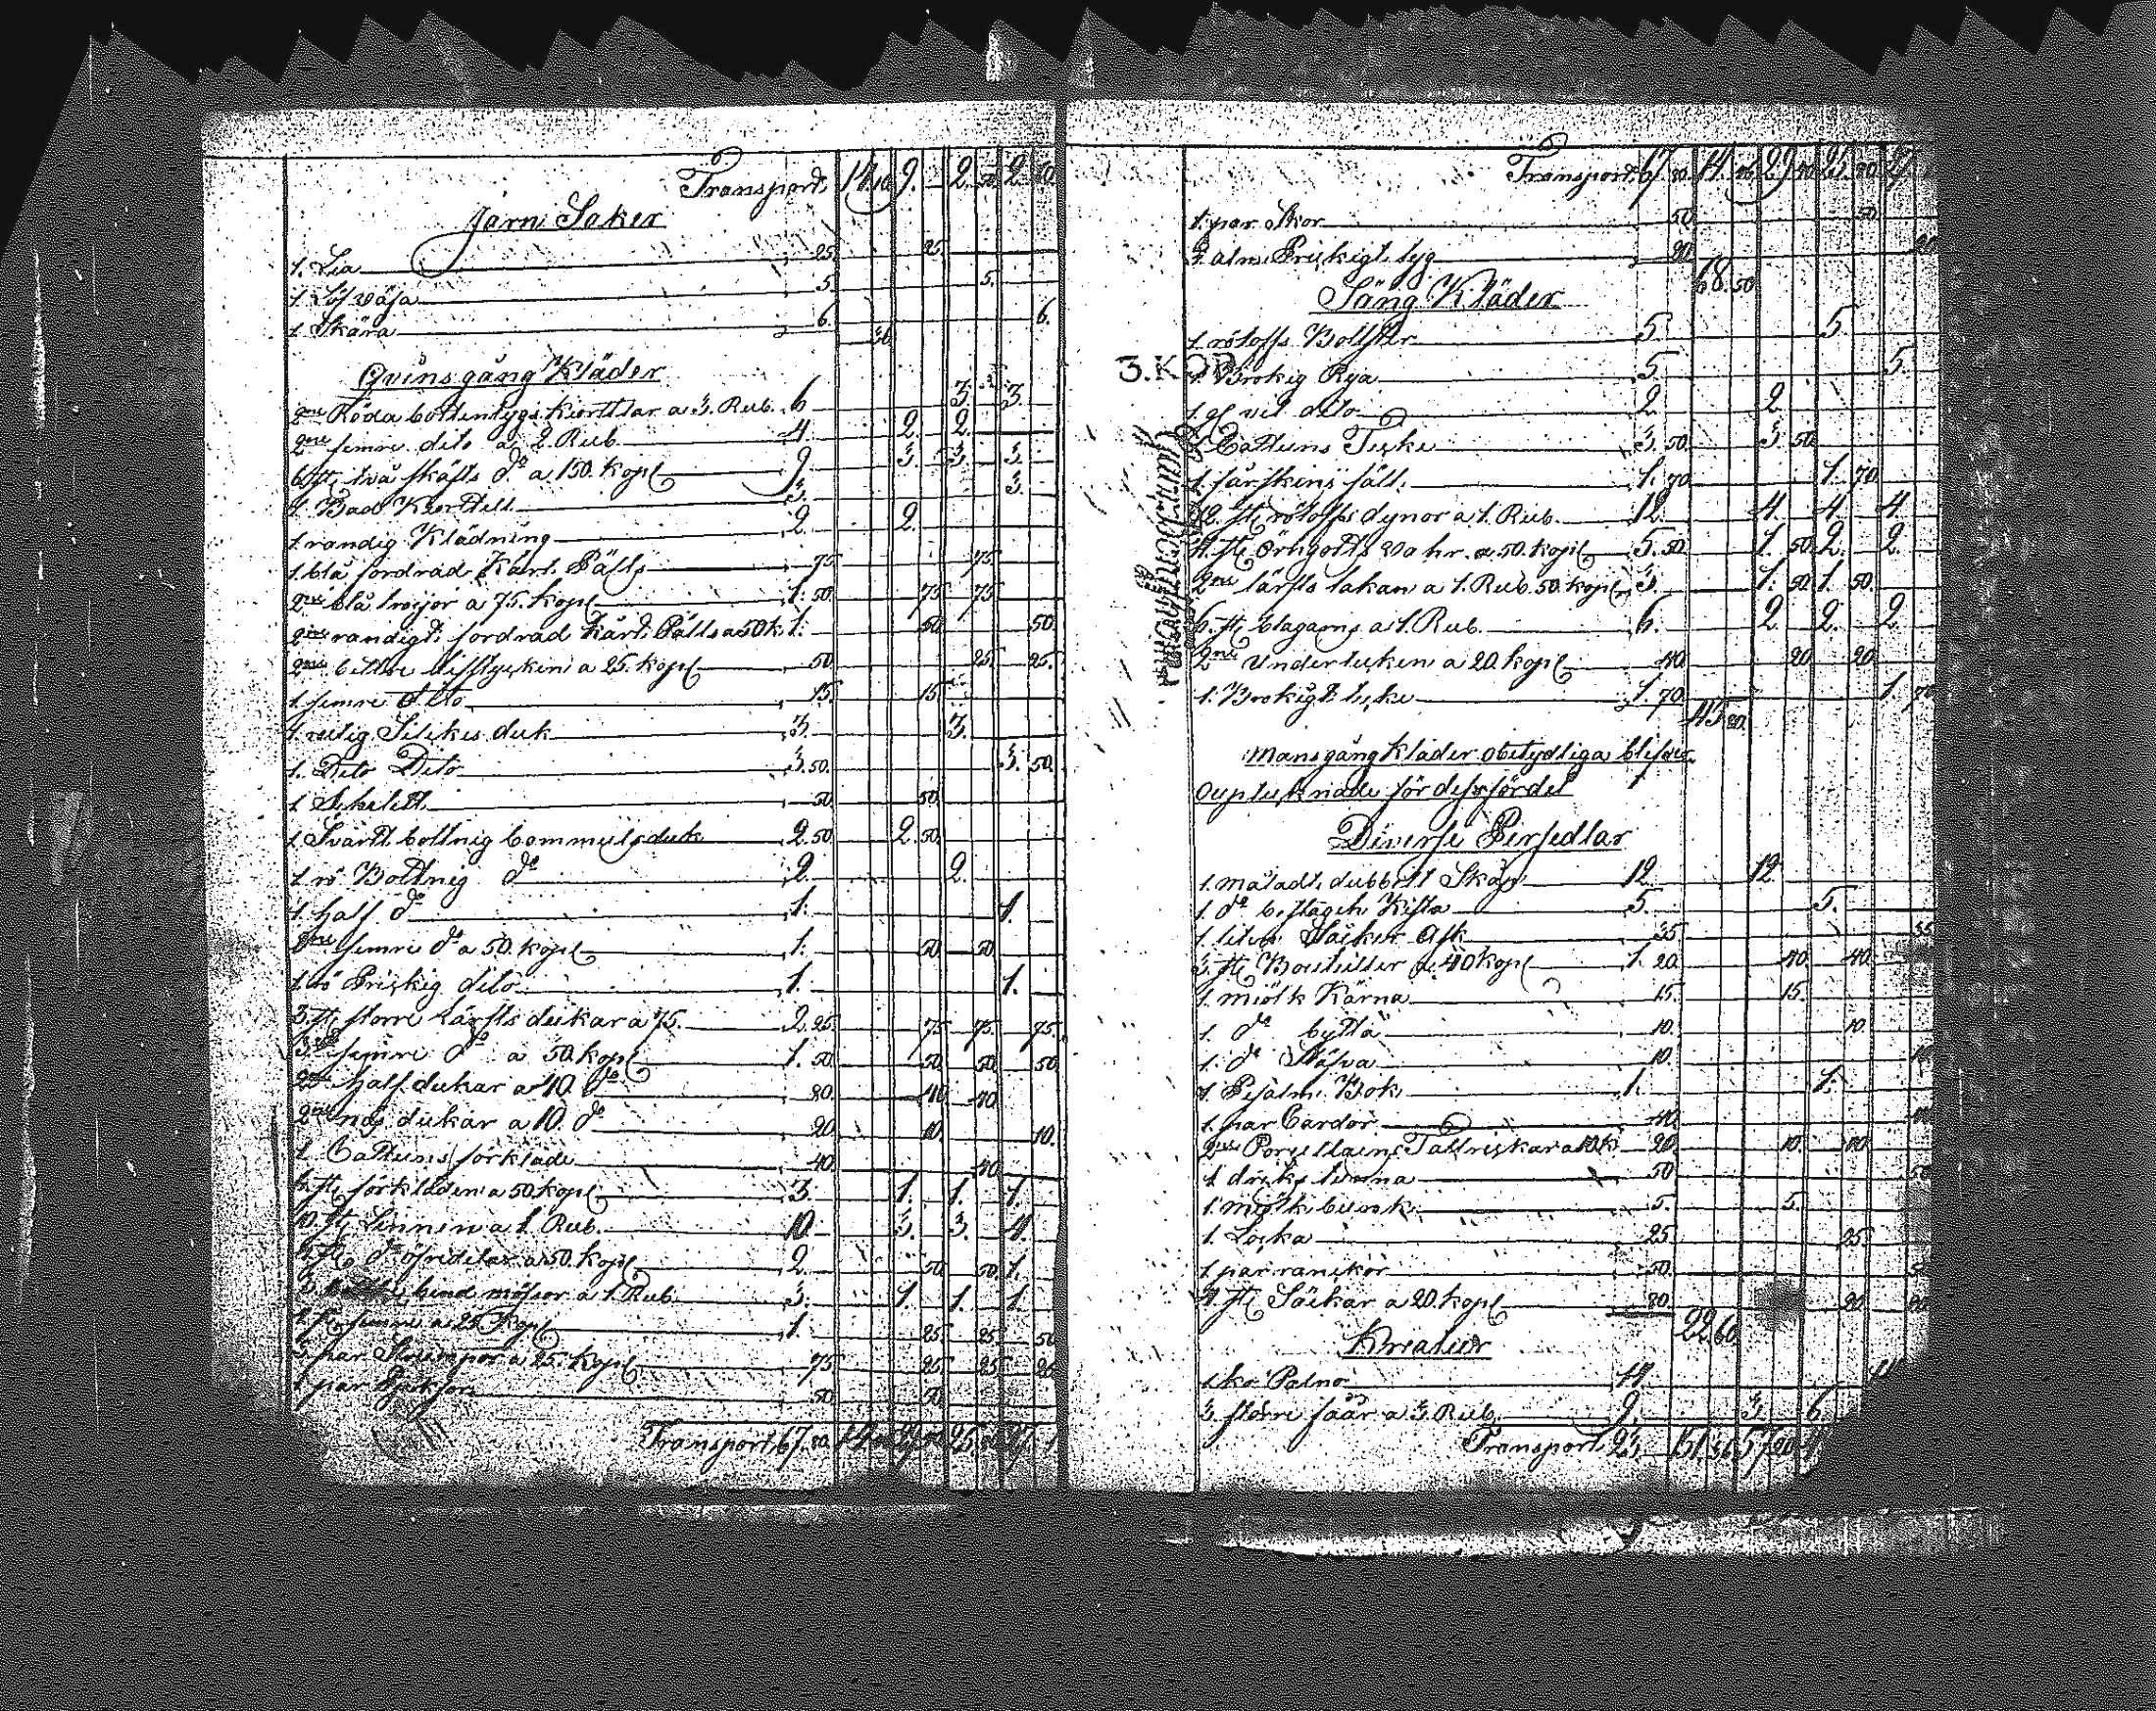 Transport 14 10 9. 2. 50 2. 60
Jern Saker
1. Lia 25 25.
1 Löf väja 5. 5.
1 Skära 6. 36 6.
Qvinsgång Kläder
2ne Röda bottentygs kiortlar a 3. Rub. 6 3. 3.
2ne semre dito a 2. Rub. 4. 2. 2.
6 st. två skafts do a 150. kopl 9 3. 3. 3.
1 Bad Kiortell 3. 3.
1 randig Klädning 2. 2.
1. blå fordrad Kart. Pälls 75 75
2ne blå tröijor a 75. kopl 1. 50. 75 75
2ne randigt fordrad kart. Pälls a 50 k. 1. 50. 50.
2ne bettre lifstycken a 25. kopl 50. 25 25.
1 semre dito 15. 15
1 rutig Silkes duk 3. 3.
1. Dito Dito 3. 50. 3. 50.
1 Schalett 50 50
1 Svart bottnig bommulsduk 2. 50. 2. 50.
1 rö Bottnig do 2. 2.
1 half do 1. 1.
2ne semre do a 50. kopl 1. 50 50.
1 rö Prickig dito 1. 1.
3. st. storre lärfts dukar a 75. 2. 25. 75 75. 75.
3 semre do a 50. kopl 1. 50 50. 50. 50
2ne half dukar a 40. do 80 40 40
2ne näs dukar a 10. do 20 10. 10.
1 Cattuns förkläde 40 40
6 st. förkläden a 50. kopl 3. 1. 1. 1.
10 st. Linnen a 1. Rub. 10. 3. 3. 4.
4 st. do öfredelar a 50. kopl 2 50. 50. 1.
3. bind mössor a 1. Rub. 3. 1. 1. 1
4 st. semre a 25. kopl 1. 25. 25 50
3 par Strumpor a 25. kopl 75 25 25 25
1 par 50 50.
Transport 67. 80.
Transport 67. 80. 14. 46 29. 80 25. 80 27.
1. par Skor 50. 50
4 aln. Prickigt tyg 20. 68. 50 20
Säng Kläder
1 rötofs Bollster 5. 5.
1 Brokig Rya 5. 5.
1. gl vit dito 2. 2
1 Cattuns Täcke 3. 50. 3. 50.
1 fårskins fäll. 1. 70 1. 70.
12. st. rötofs dynor a 1. Rub. 12. 4. 4. 4.
11. st. örhgotts var a 50. kopl 5. 50. 1. 50 2. 2.
2ne lärfts lakan a 1. Rub. 50. kopl 3. 1. 50. 1. 50.
6. st. blagarns a 1. Rub. 6. 2. 2. 2.
2ne Undertäcken a 20. kopl 40 20 20
1. Brokigt täcke 1. 70 45 80. 1. 70
Mansgång kläder obetydliga blefvo
Oupteknade för dess fördel
Diverse Persedlar
1. måladt dubbelt Skåp 12. 12.
1. do beslagen Kista 5. 5.
1. liten Säcker Ask 35 35
3. st. Bouteiller a 40 kopl 1. 20. 40. 40.
1. miölk Kärna 15. 15.
1. do bytta 10. 10.
1. do Stäfva 10. 10
1 Psalm Bok 1. 1.
1. par Cardor 40 40
2ne Porsellains Tallrickar a 10 k. 20. 10. 10
1 dricks tunna 50 50
1. miölk bunk 5. 5.
1. Locka 25 25.
1 par 50.
4 st. Säckar a 20. kopl 80. 22 60 20
Kreatur
1 ko Palno 14
3. större fåår a 3. Rub. 9. 3. 6.
Transport 23. 151. 36 57 20
3.KOP